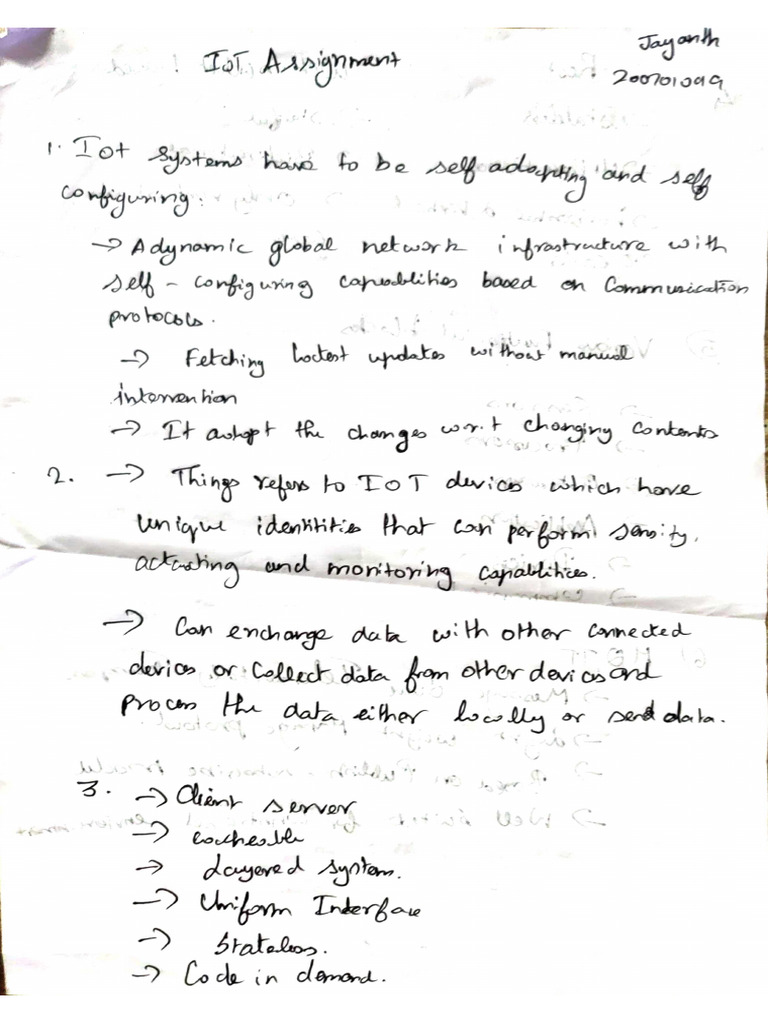 Jayanth
IoT Assignment
200701099
1. Iot systems have to be self adapting and self
configuring.
→ A dynamic global network infrastructure with
self - configuring capabilities based on Communication
protocols.
→ Fetching latest updates without manual
intervention
→ It adapt the changes w.r.t changing contents
2. → Things refers to IOT devices which have
unique identitities that can perform sensity,
actuating and monitoring capabilities.
→ Can exchange data with other connected
devices or collect data from other devices and
process the data either locally or send data.
3. → Client server
→ cacheable
→ Layered system.
→ Uniform Interface
→ Stateless.
→ Code in demand.